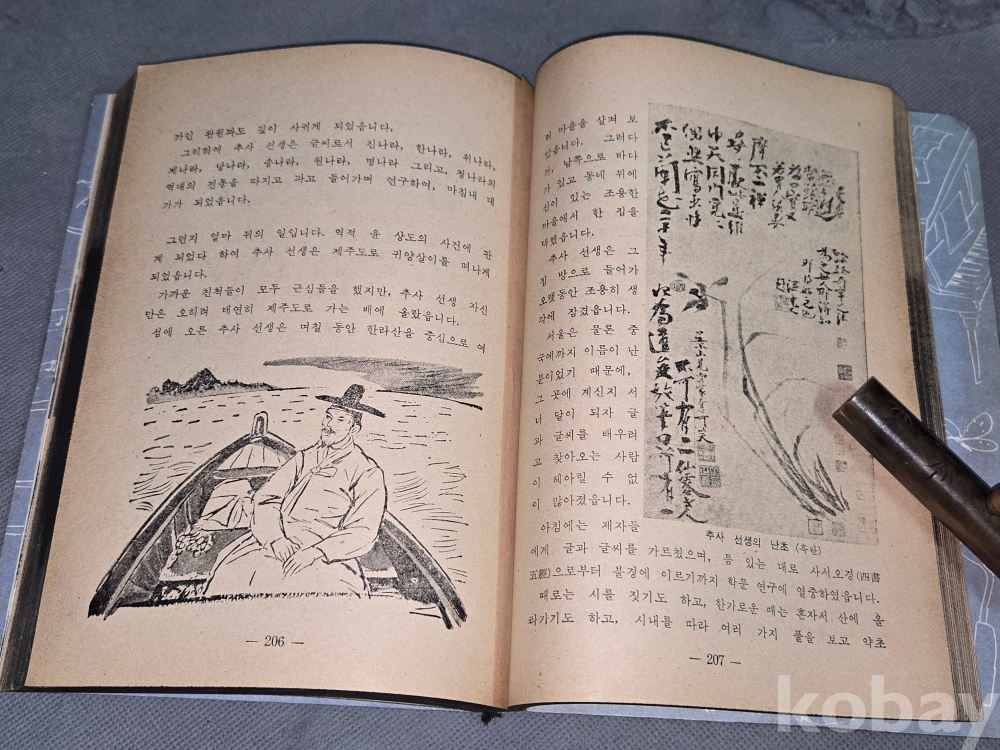 가인 완원과도 깊이 사귀게 되었읍니다.
그리하여 추사 선생은 글씨로서 진나라, 한나라, 위나라,
제나라, 당나라, 송나라, 원나라, 명나라 그리고, 청나라의
역대의 전통을 따지고 파고 들어가며 연구하여, 마침내 대
가가 되었읍니다.
그런지 얼마 뒤의 일입니다. 역적 윤 상도의 사건에 관
계 되었다 하여 추사 선생은 제주도로 귀양살이를 떠나게
되었읍니다.
가까운 친척들이 모두 근심들을 했지만, 추사 선생 자신
만은 오히려 태연히 제주도로 가는 배에 올랐읍니다.
섬에 오른 추사 선생은 며칠 동안 한라산을 중심으로 여
— 206 —
러 마을을 살펴 보
았읍니다. 그러다
가, 남쪽으로 바다
가 있고 동네 뒤에
산이 있는 조용한
마을에서 한 집을
택했읍니다.
추사 선생은 그
집 방으로 들어가
오랫동안 조용히 생
각에 잠겼읍니다.
서울은 물론 중
국에까지 이름이 난
분이었기 때문에,
그 곳에 계신지 서
너 달이 되자 글
과 글씨를 배우려
고 찾아오는 사람
이 헤아릴 수 없
이 많아졌읍니다.
不作蘭花二十年
偶然寫出性
中天閉門覓
추사 선생의 난초 (묵란)
아침에는 제자들
에게 글과 글씨를 가르쳤으며, 틈 있는 대로 사서오경(四書
五經)으로부터 불경에 이르기까지 학문 연구에 열중하였읍니다.
때로는 시를 짓기도 하고, 한가로운 때는 혼자서 산에 올
라가기도 하고, 시내를 따라 여러 가지 풀을 보고 약초
— 207 —
kobay